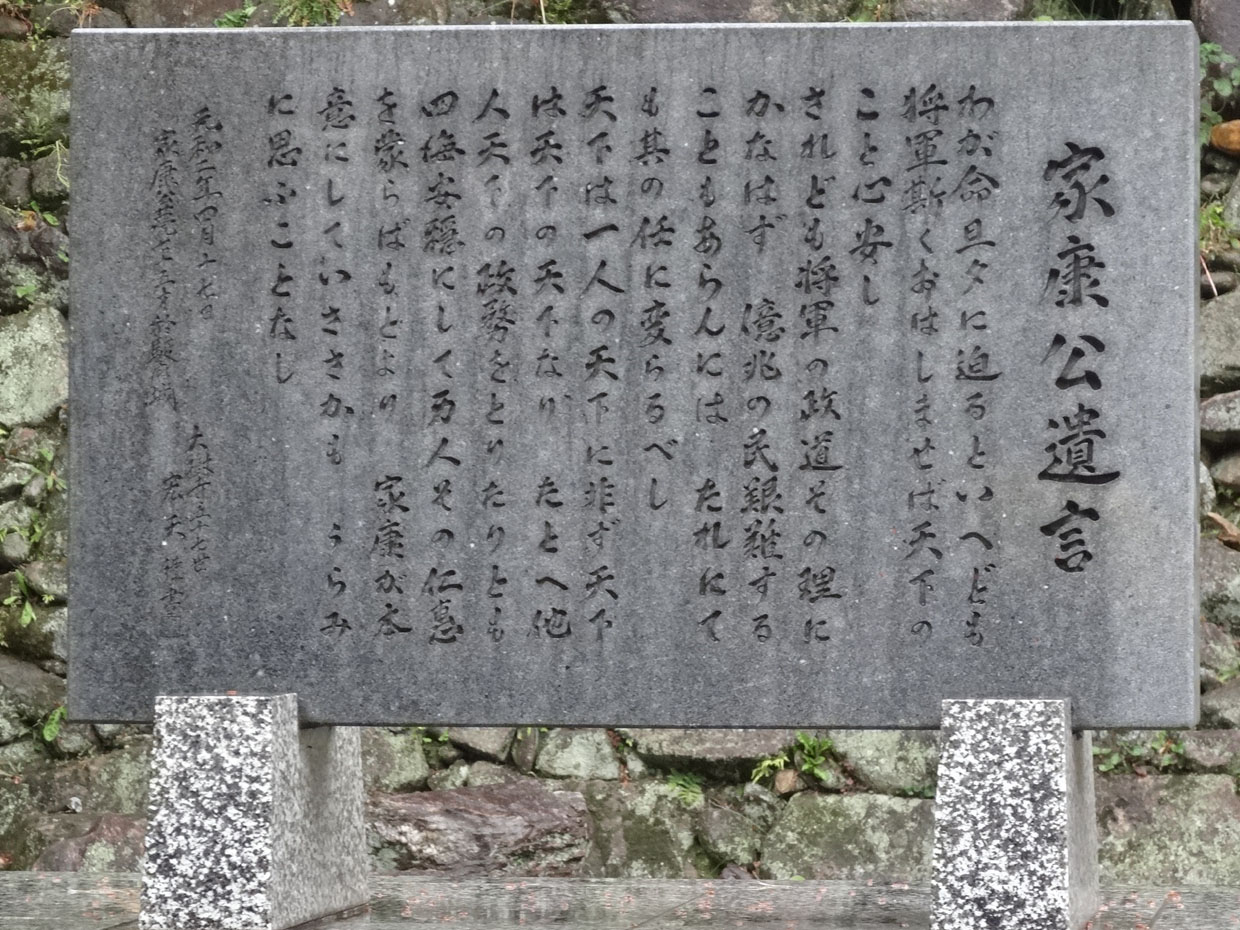 家康公遺言
わが命旦夕に迫るといへども
将軍斯くおはしませば天下の
こと心安し
されども将軍の政道その理に
かなはず 億兆の民艱難する
こともあらんには たれにて
も其の任に変らるべし
天下は一人の天下に非ず天下
は天下の天下なり たとへ他
人天下の政務をとりたりとも
四海安穏にして万人その仁恵
を蒙らばもとより 家康が本
意にしていささかも うらみ
に思ふことなし
元和二年四月十七日
家康公薨七十五才於駿城
大樹寺